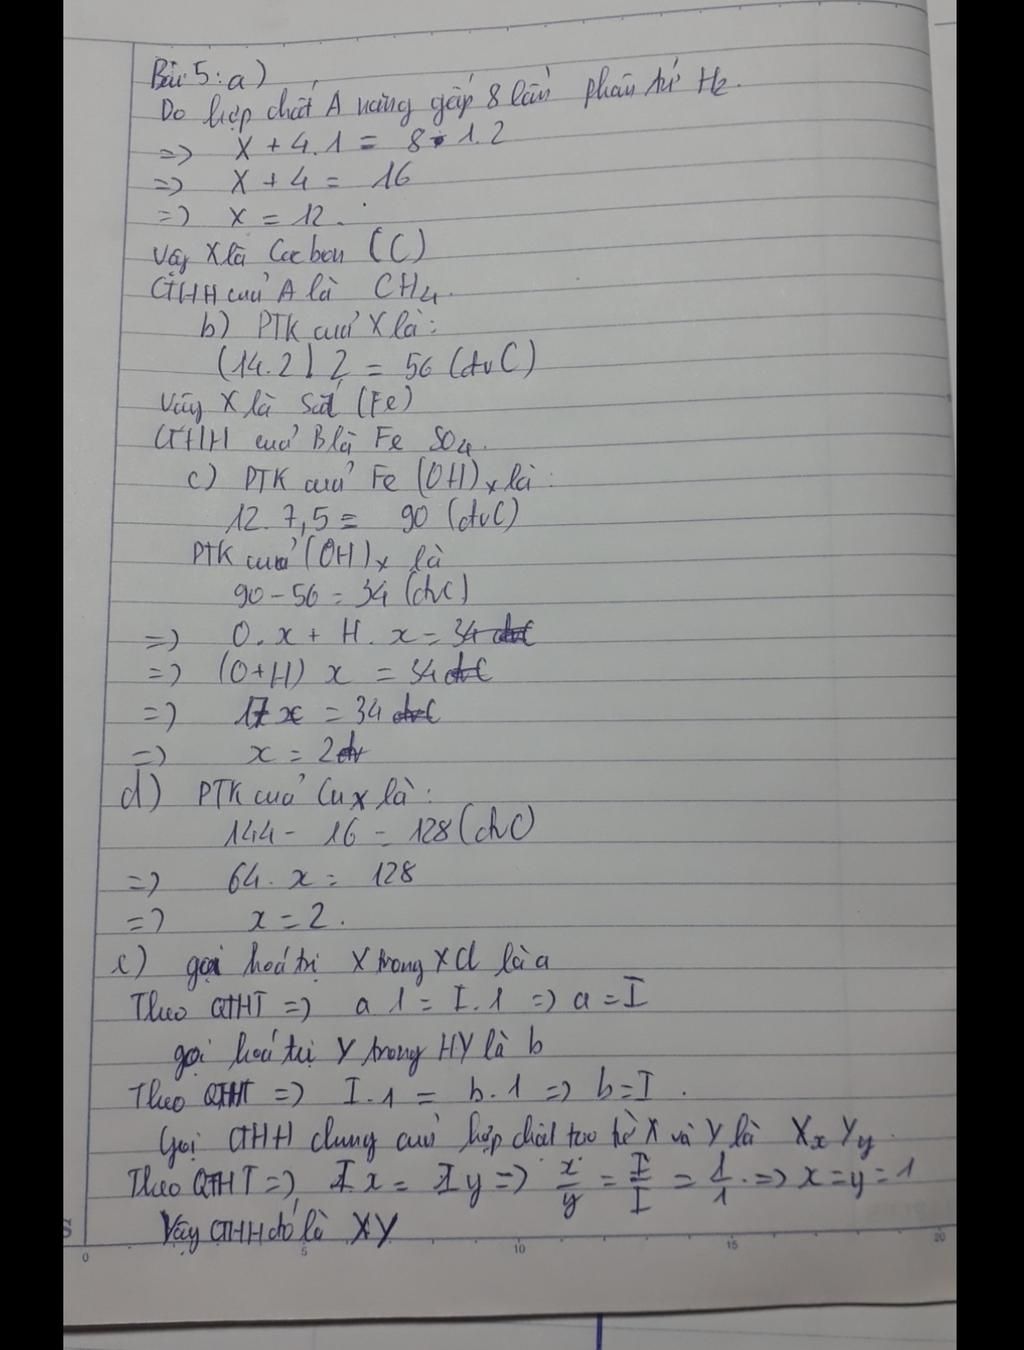 Bài 5: a)
Do hợp chất A nặng gấp 8 lần phân tử H₂.
=> X + 4.1 = 8.1.2
=> X + 4 = 16
=> X = 12.
Vậy X là Cacbon (C)
CTHH của A là CH₄.
b) PTK của X là:
(14.2).2 = 56 (đvC)
Vậy X là Sắt (Fe)
CTHH của B là FeSO₄.
c) PTK của Fe(OH)ₓ là:
12.7,5 = 90 (đvC)
PTK của (OH)ₓ là
90 - 56 = 34 (đvC)
=> O.x + H.x = 34
=> (O+H) x = 34
=> 17x = 34
=> x = 2
d) PTK của Cuₓ là:
144 - 16 = 128 (đvC)
=> 64.x = 128
=> x = 2.
e) gọi hoá trị X trong XCl là a
Theo QTHT => a.1 = I.1 => a = I
gọi hoá trị Y trong HY là b
Theo QTHT => I.1 = b.1 => b = I.
Gọi CTHH chung của hợp chất tạo từ X và Y là XₓYᵧ.
Theo QTHT => I.x = I.y => x/y = I/I = 1/1 => x = y = 1
Vậy CTHH đó là XY
S
0 5 10 15 20